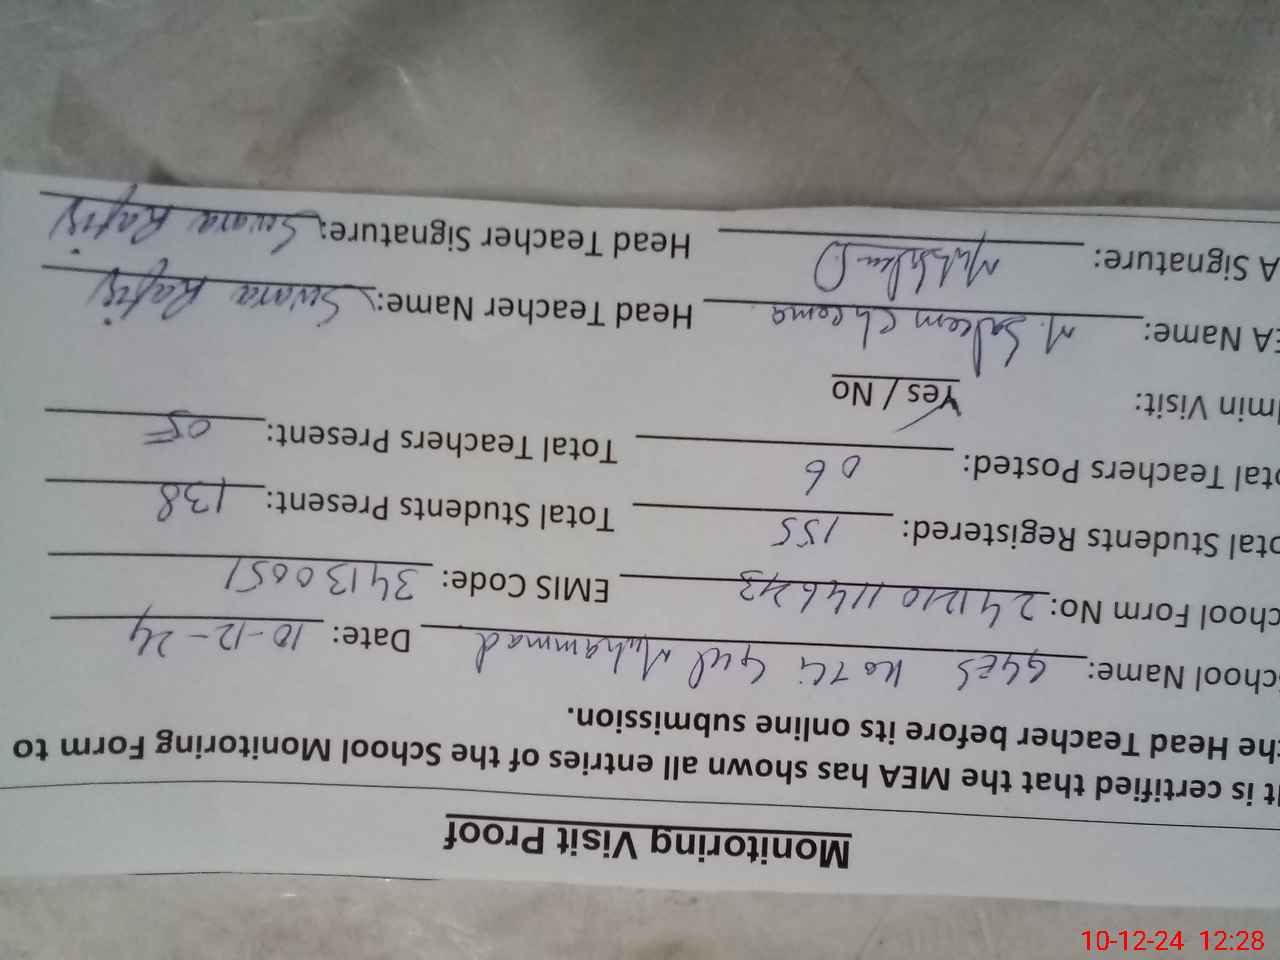 Monitoring Visit Proof
It is certified that the MEA has shown all entries of the School Monitoring Form to
the Head Teacher before its online submission.
School Name: GGES Kotli Gul Muhammad Date: 10-12-24
chool Form No: EMIS Code: 34130051
otal Students Registered: 155 Total Students Present: 138
otal Teachers Posted: 06 Total Teachers Present: 05
min Visit: Yes / No
EA Name: M. Saleem Cheema Head Teacher Name: Rafiq
A Signature: Head Teacher Signature: Rafiq
10-12-24 12:28